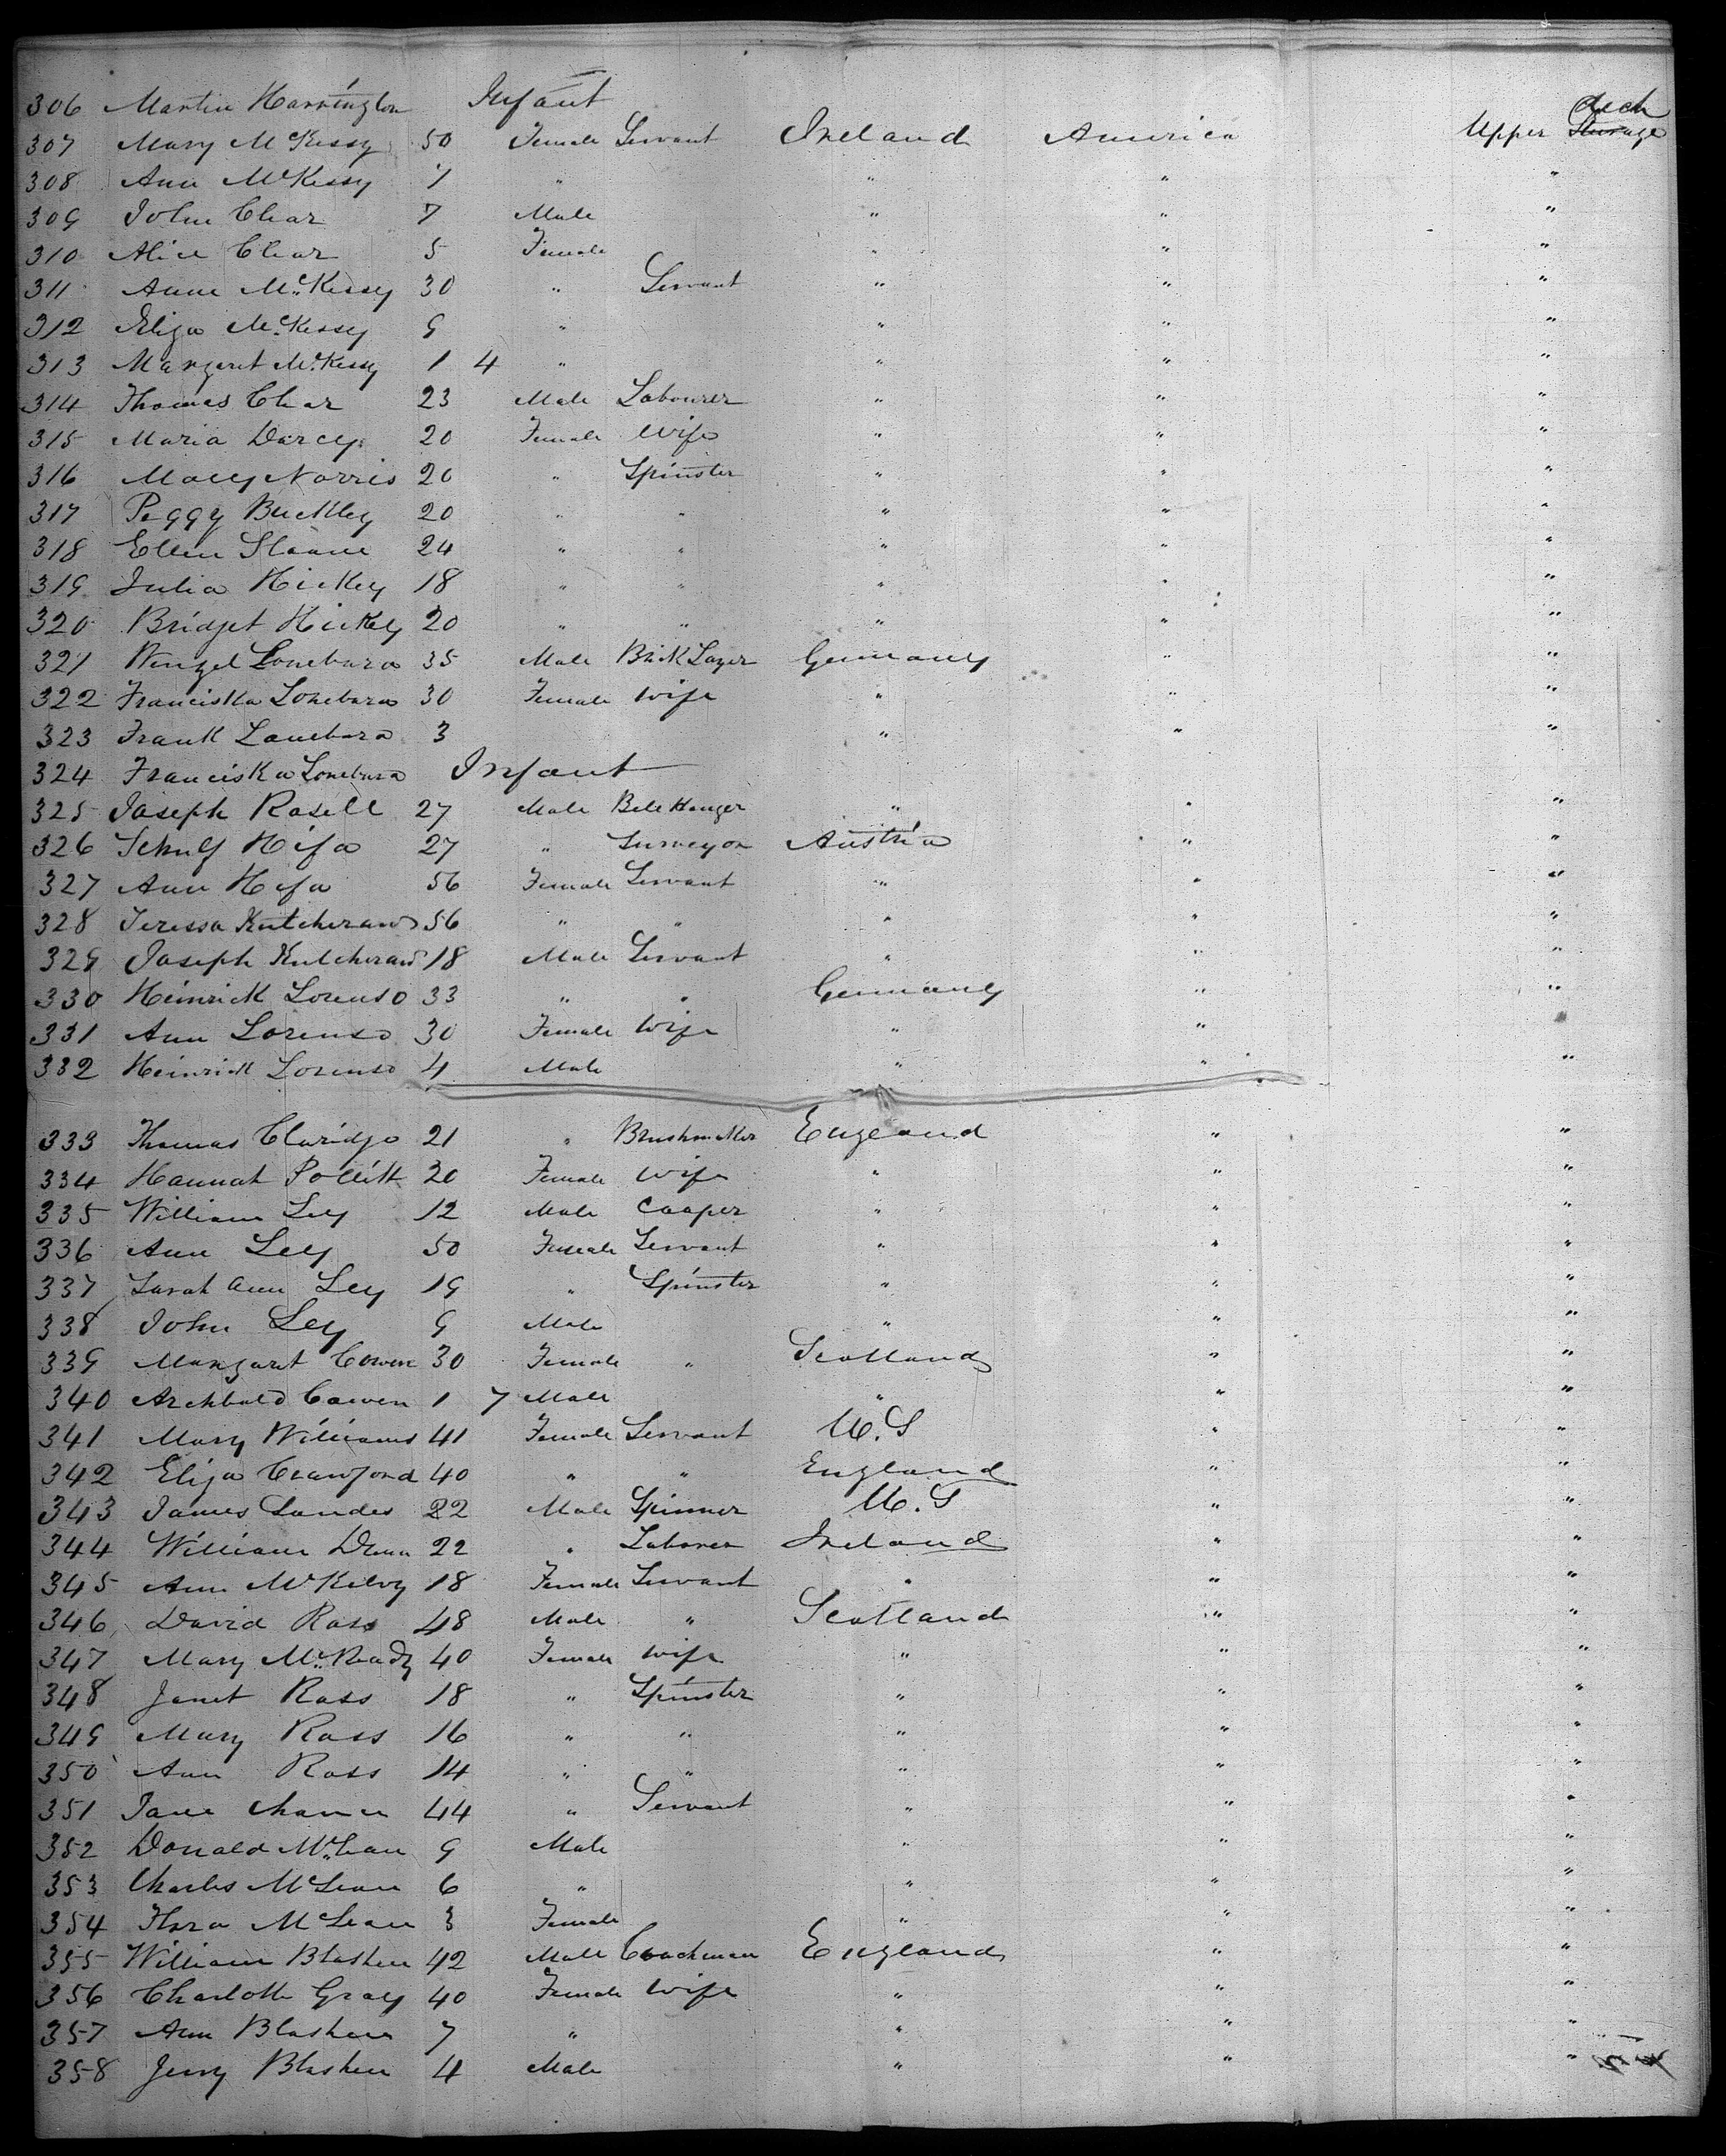 306 Martin Harrington Infant
307 Mary McKessy 50 Female Servant Ireland America Upper deck Sterage
308 Ann McKessy 7 " " " "
309 John Clear 7 Male " " "
310 Alice Clear 5 Female " " "
311 Anne McKessy 30 " Servant " " "
312 Eliza McKessy 9 " " " "
313 Margaret McKessy 1 4 " " " "
314 Thomas Clear 23 Male Labourer " " "
315 Maria Darcy 20 Female Wife " " "
316 Mary Norris 20 " Spinster " " "
317 Peggy Buckley 20 " " " " "
318 Ellen Sloane 24 " " " " "
319 Julia Hickey 18 " " " " "
320 Bridget Hickey 20 " " " " "
321 Wenzel Lonebara 35 Male Brick Layer Germany " "
322 Franciska Lonebara 30 Female Wife " " "
323 Frank Lonebara 3 " " "
324 Franciska Lonebara Infant
325 Joseph Rosell 27 Male Bell Hanger " " "
326 Hifa 27 " Surveyor Austria " "
327 Ann Hifa 56 Female Servant " " "
328 Teressa Kutcheraw 56 " " " " "
329 Joseph Kutcheraw 18 Male Servant " " "
330 Heinrick Lorenso 33 " " Germany " "
331 Ann Lorenso 30 Female Wife " " "
332 Heinrick Lorenso 4 Male " " "
333 Thomas Claridge 21 " Brushmaker England " "
334 Hannah Pollitt 20 Female Wife " " "
335 William Ley 12 Male Cooper " " "
336 Ann Ley 50 Female Servant " " "
337 Sarah Ann Ley 19 " Spinster " " "
338 John Ley 9 Male " " "
339 Margaret Cowen 30 Female " Scotland " "
340 Archbald Cowen 1 7 Male " " "
341 Mary Williams 41 Female Servant U.S " "
342 Eliza Crawford 40 " " England " "
343 James Landes 22 Male Spinner U.S " "
344 William Dunn 22 " Laborer Ireland " "
345 Ann McKilvy 18 Female Servant " " "
346 David Ross 48 Male " Scotland " "
347 Mary McReady 40 Female Wife " " "
348 Janet Ross 18 " Spinster " " "
349 Mary Ross 16 " " " " "
350 Ann Ross 14 " " " " "
351 Jane 44 " Servant " " "
352 Donald McLean 9 Male " " "
353 Charles McLean 6 " " " "
354 Flora McLean 3 Female " " "
355 William Blashen 42 Male Coachman England " "
356 Charlotte Gray 40 Female Wife " " "
357 Ann Blashen 7 " " " "
358 Jerry Blashen 4 Male " " "